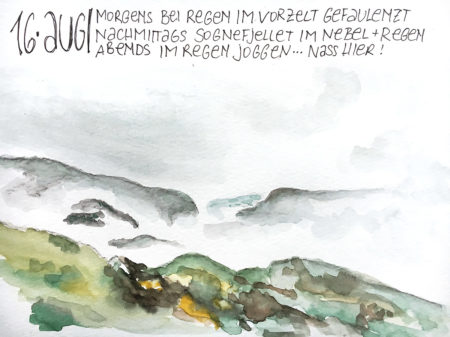 16. AUG/
MORGENS BEI REGEN IM VORZELT GEFAULENZT
NACHMITTAGS SOGNEFJELLET IM NEBEL + REGEN
ABENDS IM REGEN JOGGEN... NASS HIER!